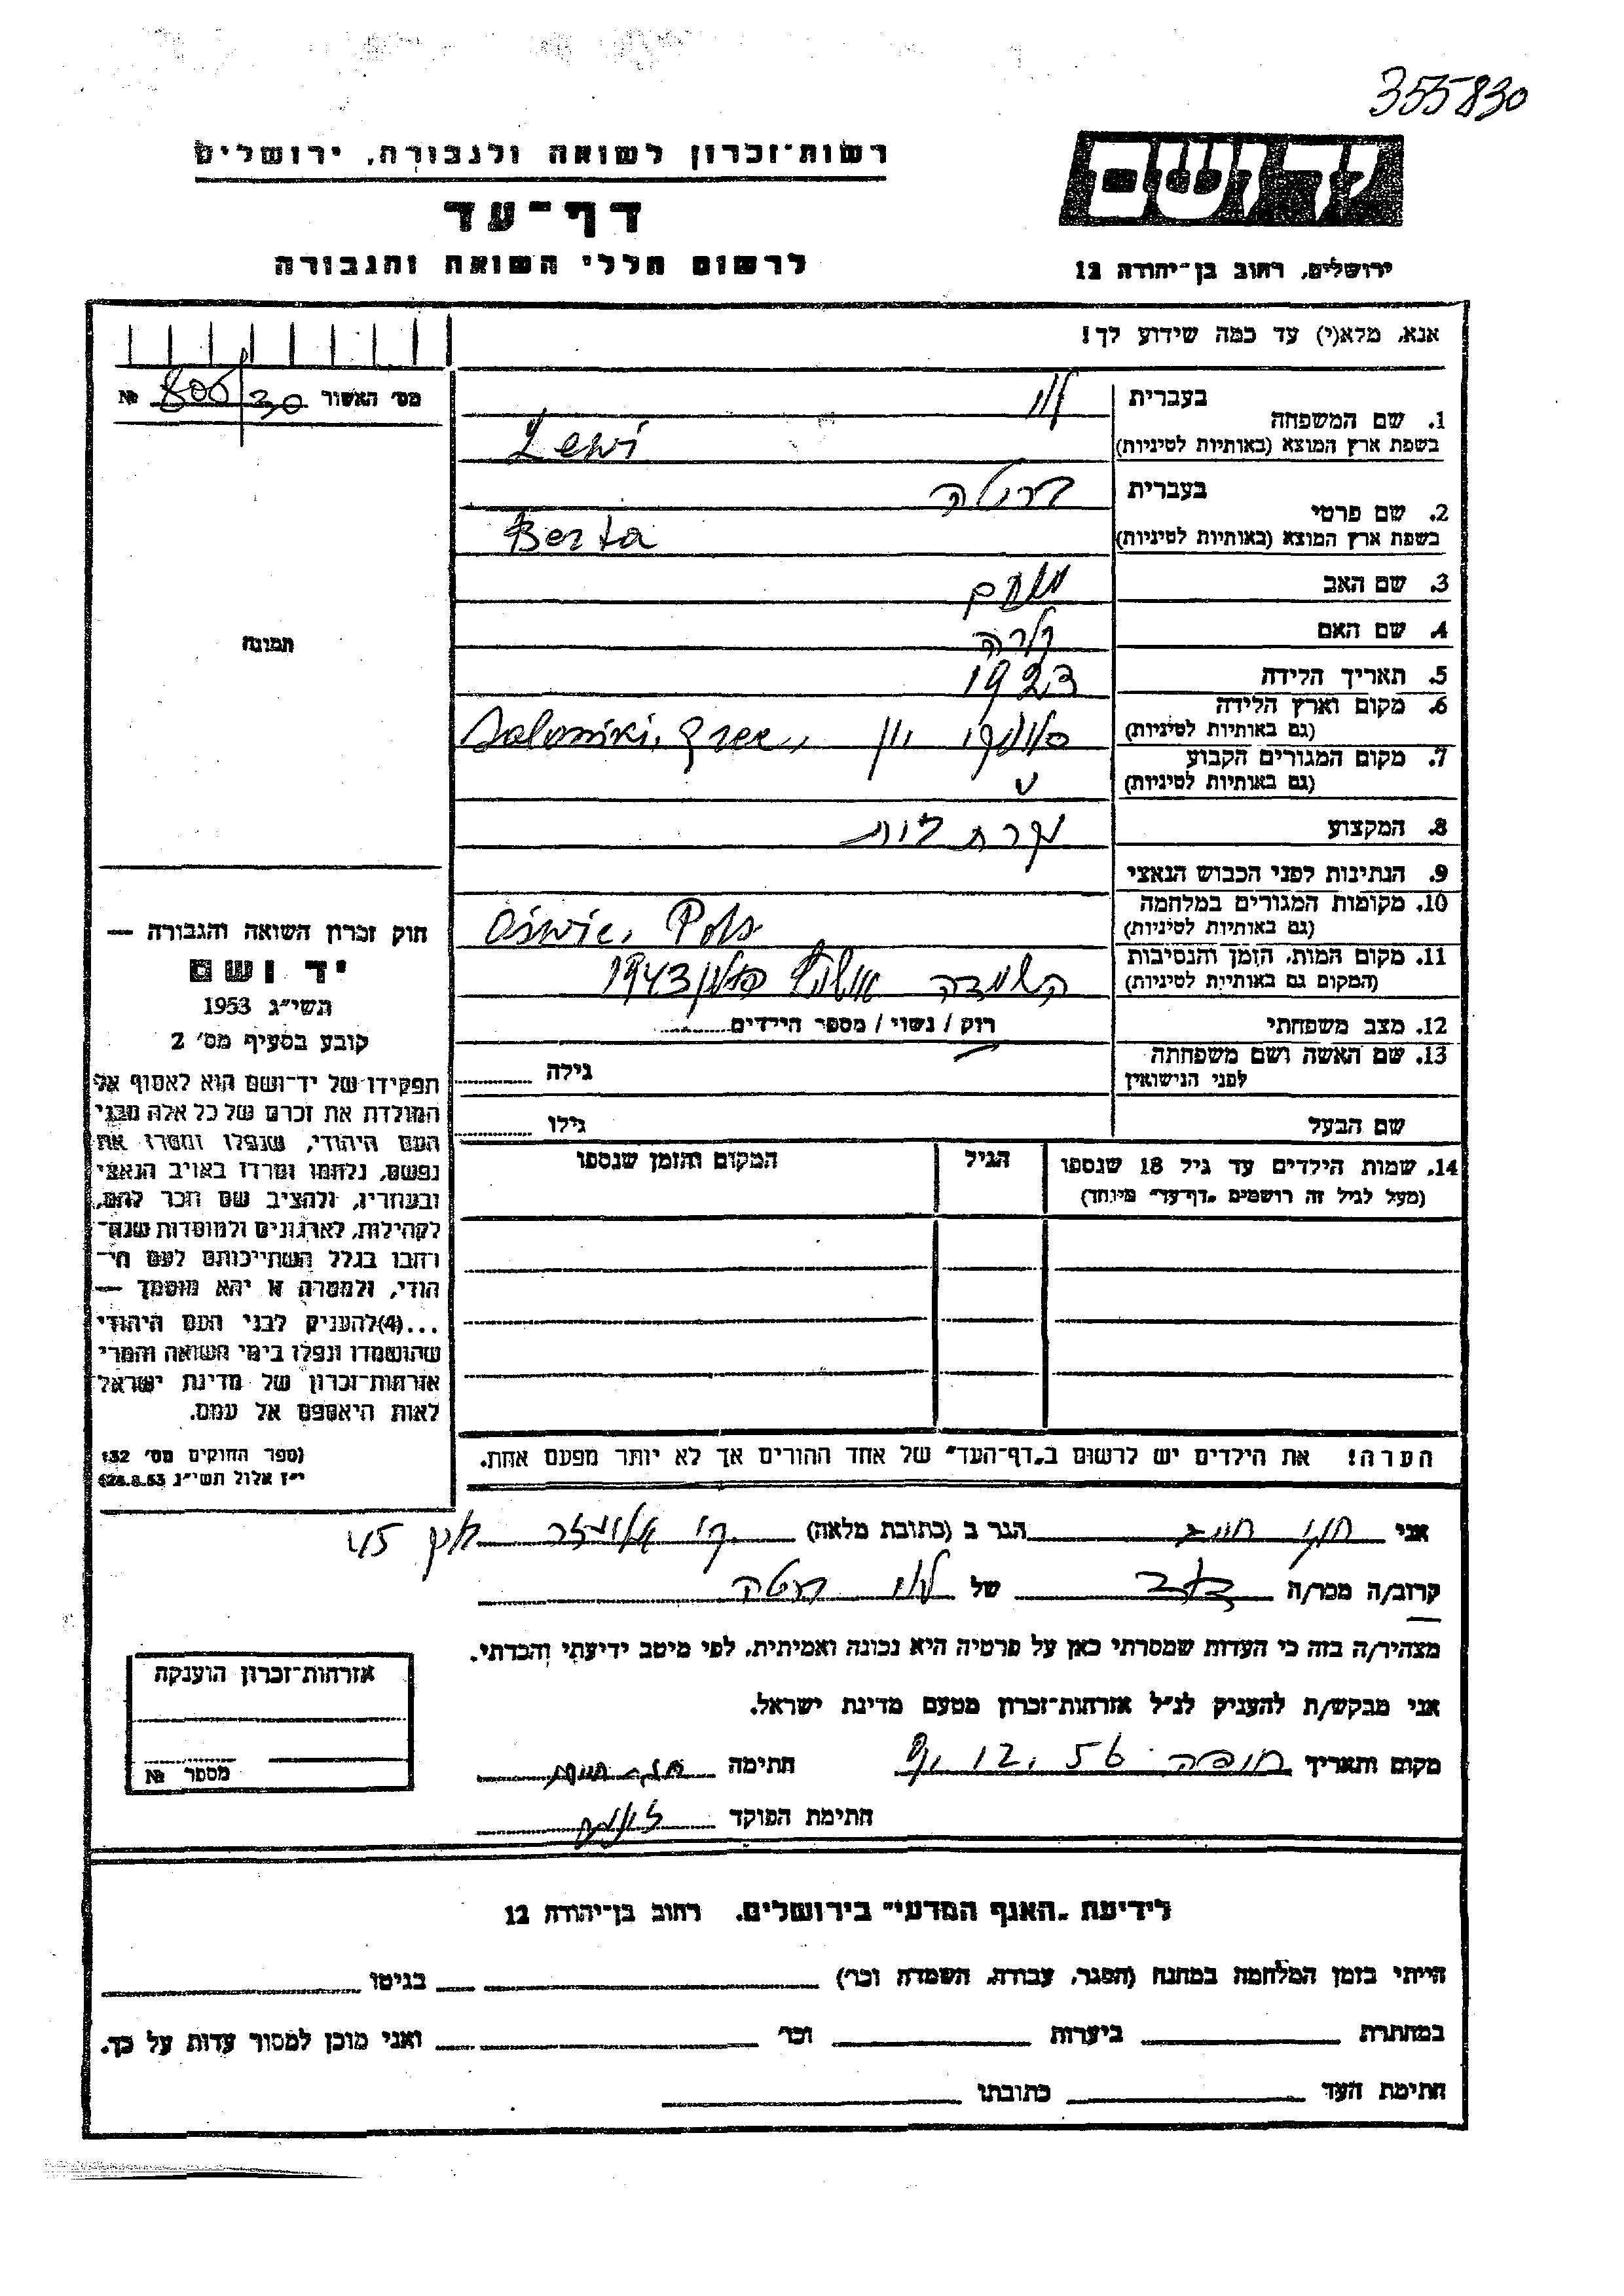 355830
רשות־זכרון לשואה ולגבורה, ירושלים
יד ושם
דף־עד
לרשום חללי השואה והגבורה
ירושלים, רחוב בן־יהודה 12
אנא, מלא(י) עד כמה שידוע לך!
מס׳ האשור 30/806 №
בעברית לוי
1. שם המשפחה
בשפת ארץ המוצא (באותיות לטיניות) Lewi
בעברית ברטה
2. שם פרטי
בשפת ארץ המוצא (באותיות לטיניות) Berta
3. שם האב
4. שם האם קלרה
תמונה
5. תאריך הלידה 1923
6. מקום וארץ הלידה
(גם באותיות לטיניות) סלוניקי יון, Saloniki, Gree
7. מקום המגורים הקבוע
(גם באותיות לטיניות)
8. המקצוע עקרת בית
9. הנתינות לפני הכבוש הנאצי
10. מקומות המגורים במלחמה
(גם באותיות לטיניות) Oświe, Pols
11. מקום המות, הזמן והנסיבות
(המקום גם באותיות לטיניות) השמדה פולין 1943
12. מצב משפחתי רוק / נשוי / מספר הילדים
13. שם האשה ושם משפחתה
לפני הנישואין גילה
שם הבעל גילו
חוק זכרון השואה והגבורה —
יד ושם
תשי״ג 1953
קובע בסעיף מס׳ 2
תפקידו של יד־ושם הוא לאסוף אל
המולדת את זכרם של כל אלה מבני
העם היהודי, שנפלו ומסרו את
נפשם, נלחמו ומרדו באויב הנאצי
ובעוזריו, ולהציב שם וזכר להם,
לקהילות, לארגונים ולמוסדות שנח־
רבו בגלל השתייכותם לעם הי־
הודי, ולמטרה זו יהא מוסמך —
...(4)להעניק לבני העם היהודי
שהושמדו ונפלו בימי השואה והמרי
אזרחות־זכרון של מדינת ישראל
לאות היאספם אל עמם.
(ספר החוקים מס׳ 132
י״ז אלול תשי״ג 28.8.53)
14. שמות הילדים עד גיל 18 שנספו הגיל המקום והזמן שנספו
(מעל לגיל זה רושמים „דף־עד״ מיוחד)
הערה! את הילדים יש לרשום ב„דף־העד״ של אחד ההורים אך לא יותר מפעם אחת.
אני הגר ב (כתובת מלאה) ק׳ אליעזר 45
קרוב/ה מכר/ה של לוי ברטה
מצהיר/ה בזה כי העדות שמסרתי כאן על פרטיה היא נכונה ואמיתית, לפי מיטב ידיעתי והכרתי.
אני מבקש/ת להעניק לנ״ל אזרחות־זכרון מטעם מדינת ישראל.
מקום ותאריך חיפה 9.12.56 חתימה
חתימת הפוקד
אזרחות־זכרון הוענקה
מספר №
לידיעת „האגף המדעי״ בירושלים, רחוב בן־יהודה 12
הייתי בזמן המלחמה במחנה (הסגר, עבודה, השמדה וכר׳) בגיטו
במחתרת ביערות וכר׳ ואני מוכן למסור עדות על כך.
חתימת העד כתובתו